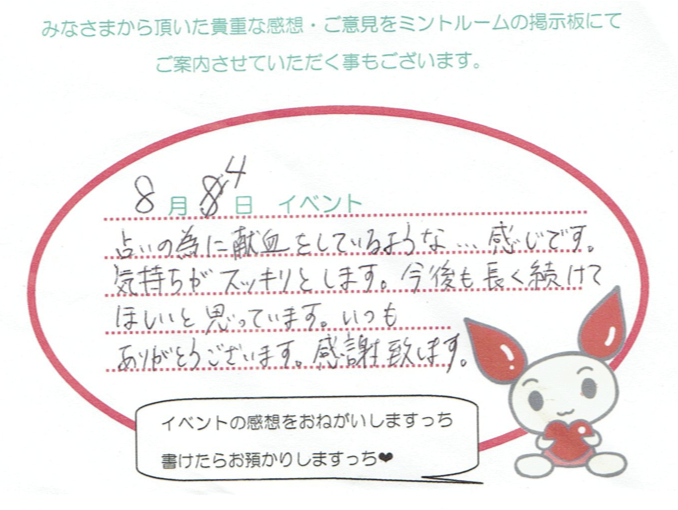 みなさまから頂いた貴重な感想・ご意見をミントルームの掲示板にて
ご案内させていただく事もございます。
8月4日 イベント
占いの為に献血をしているような…感じです。
気持ちがスッキリとします。今後も長く続けて
ほしいと思っています。いつも
ありがとうございます。感謝致します。
イベントの感想をおねがいしますっち
書けたらお預かりしますっち❤